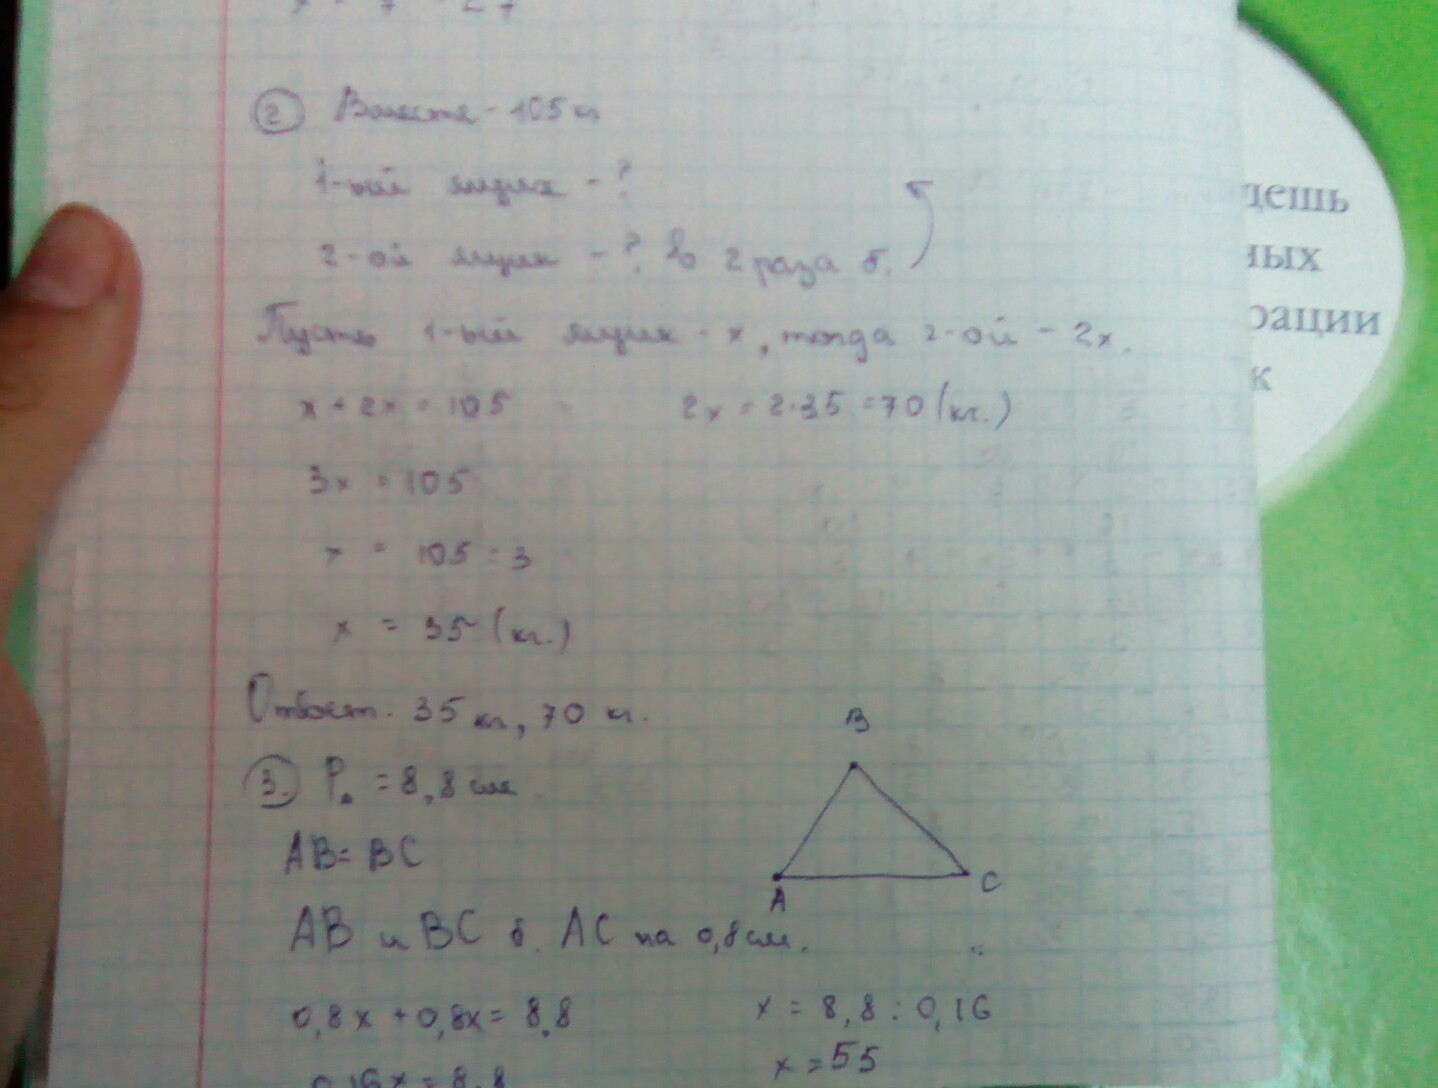 ② Вместе - 105 кг
1-ый ящик - ?
2-ой ящик - ? в 2 раза б.
Пусть 1-ый ящик - x, тогда 2-ой - 2x.
x + 2x = 105
2x = 2·35 = 70 (кг.)
3x = 105
x = 105 : 3
x = 35 (кг.)
Ответ. 35 кг, 70 кг.
③. P = 8,8 см
AB = BC
AB и BC б. AC на 0,8 см.
B
A
C
0,8x + 0,8x = 8,8
0,16x = 8,8
x = 8,8 : 0,16
x = 55
дешь
ных
рации
к